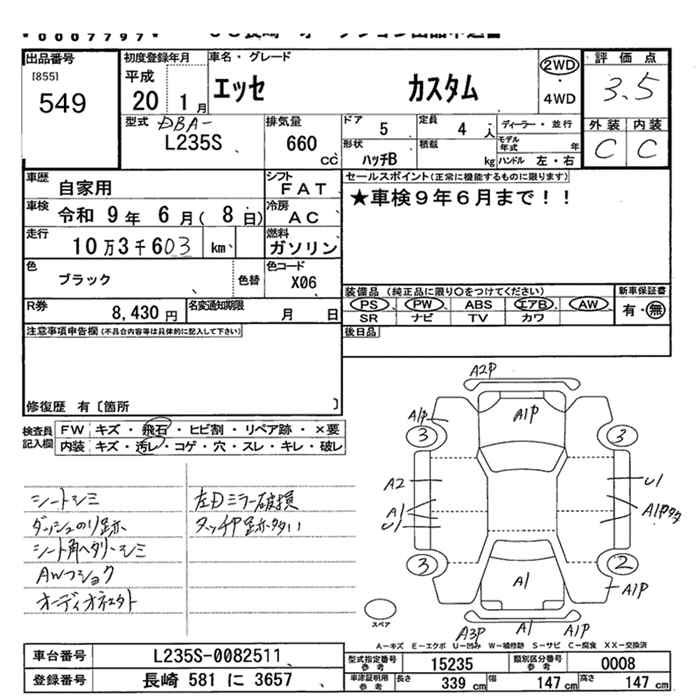 出品番号 初度登録年月 車名・グレード 評価点
[855] 549 平成 20 1月 エッセ カスタム 2WD・4WD 3.5
型式 DBA- L235S 排気量 660 cc ドア 5 定員 4 人 ディーラー・並行 外装 内装
形状 ハッチB 積載 kg モデル年式 年 ハンドル 左・右 C C
車歴 自家用 シフト FAT セールスポイント(正常に機能するものに限ります)
車検 令和 9年 6月( 8日) 冷房 AC ★車検9年6月まで!!
走行 10万3千603 km 燃料 ガソリン
色 ブラック 色替 色コード X06
装備品 (純正品に限り〇をつけてください) 新車保証書
R券 8,430円 名変通知期限 月 日 PS PW ABS エアB AW 有・無
SR ナビ TV カワ
注意事項申告欄(不具合内容等は具体的に記入して下さい) 後日品
修復歴 有〔箇所 〕
検査員記入欄 FW キズ・飛石・ヒビ割・リペア跡・×要
内装 キズ・汚レ・コゲ・穴・スレ・キレ・破レ
シートシミ 左Dミラー破損
ダッシュのり跡 タッチP跡多い
シート角ヘタリ・シミ
AWフショク
A2P
A1P A1P
3 3
A2 U1
A1 A1P
U1
3 2
A1 A1P
スペア A3P A1 A1P
A-キズ E-エクボ U-凹み W-補修跡 S-サビ C-腐食 XX-交換済
車台番号 L235S-0082511 型式指定番号 参考 15235 類別区分番号 参考 0008
登録番号 長崎 581 に 3657 車庫証明用 参考 長さ 339 cm 幅 147 cm 高さ 147 cm